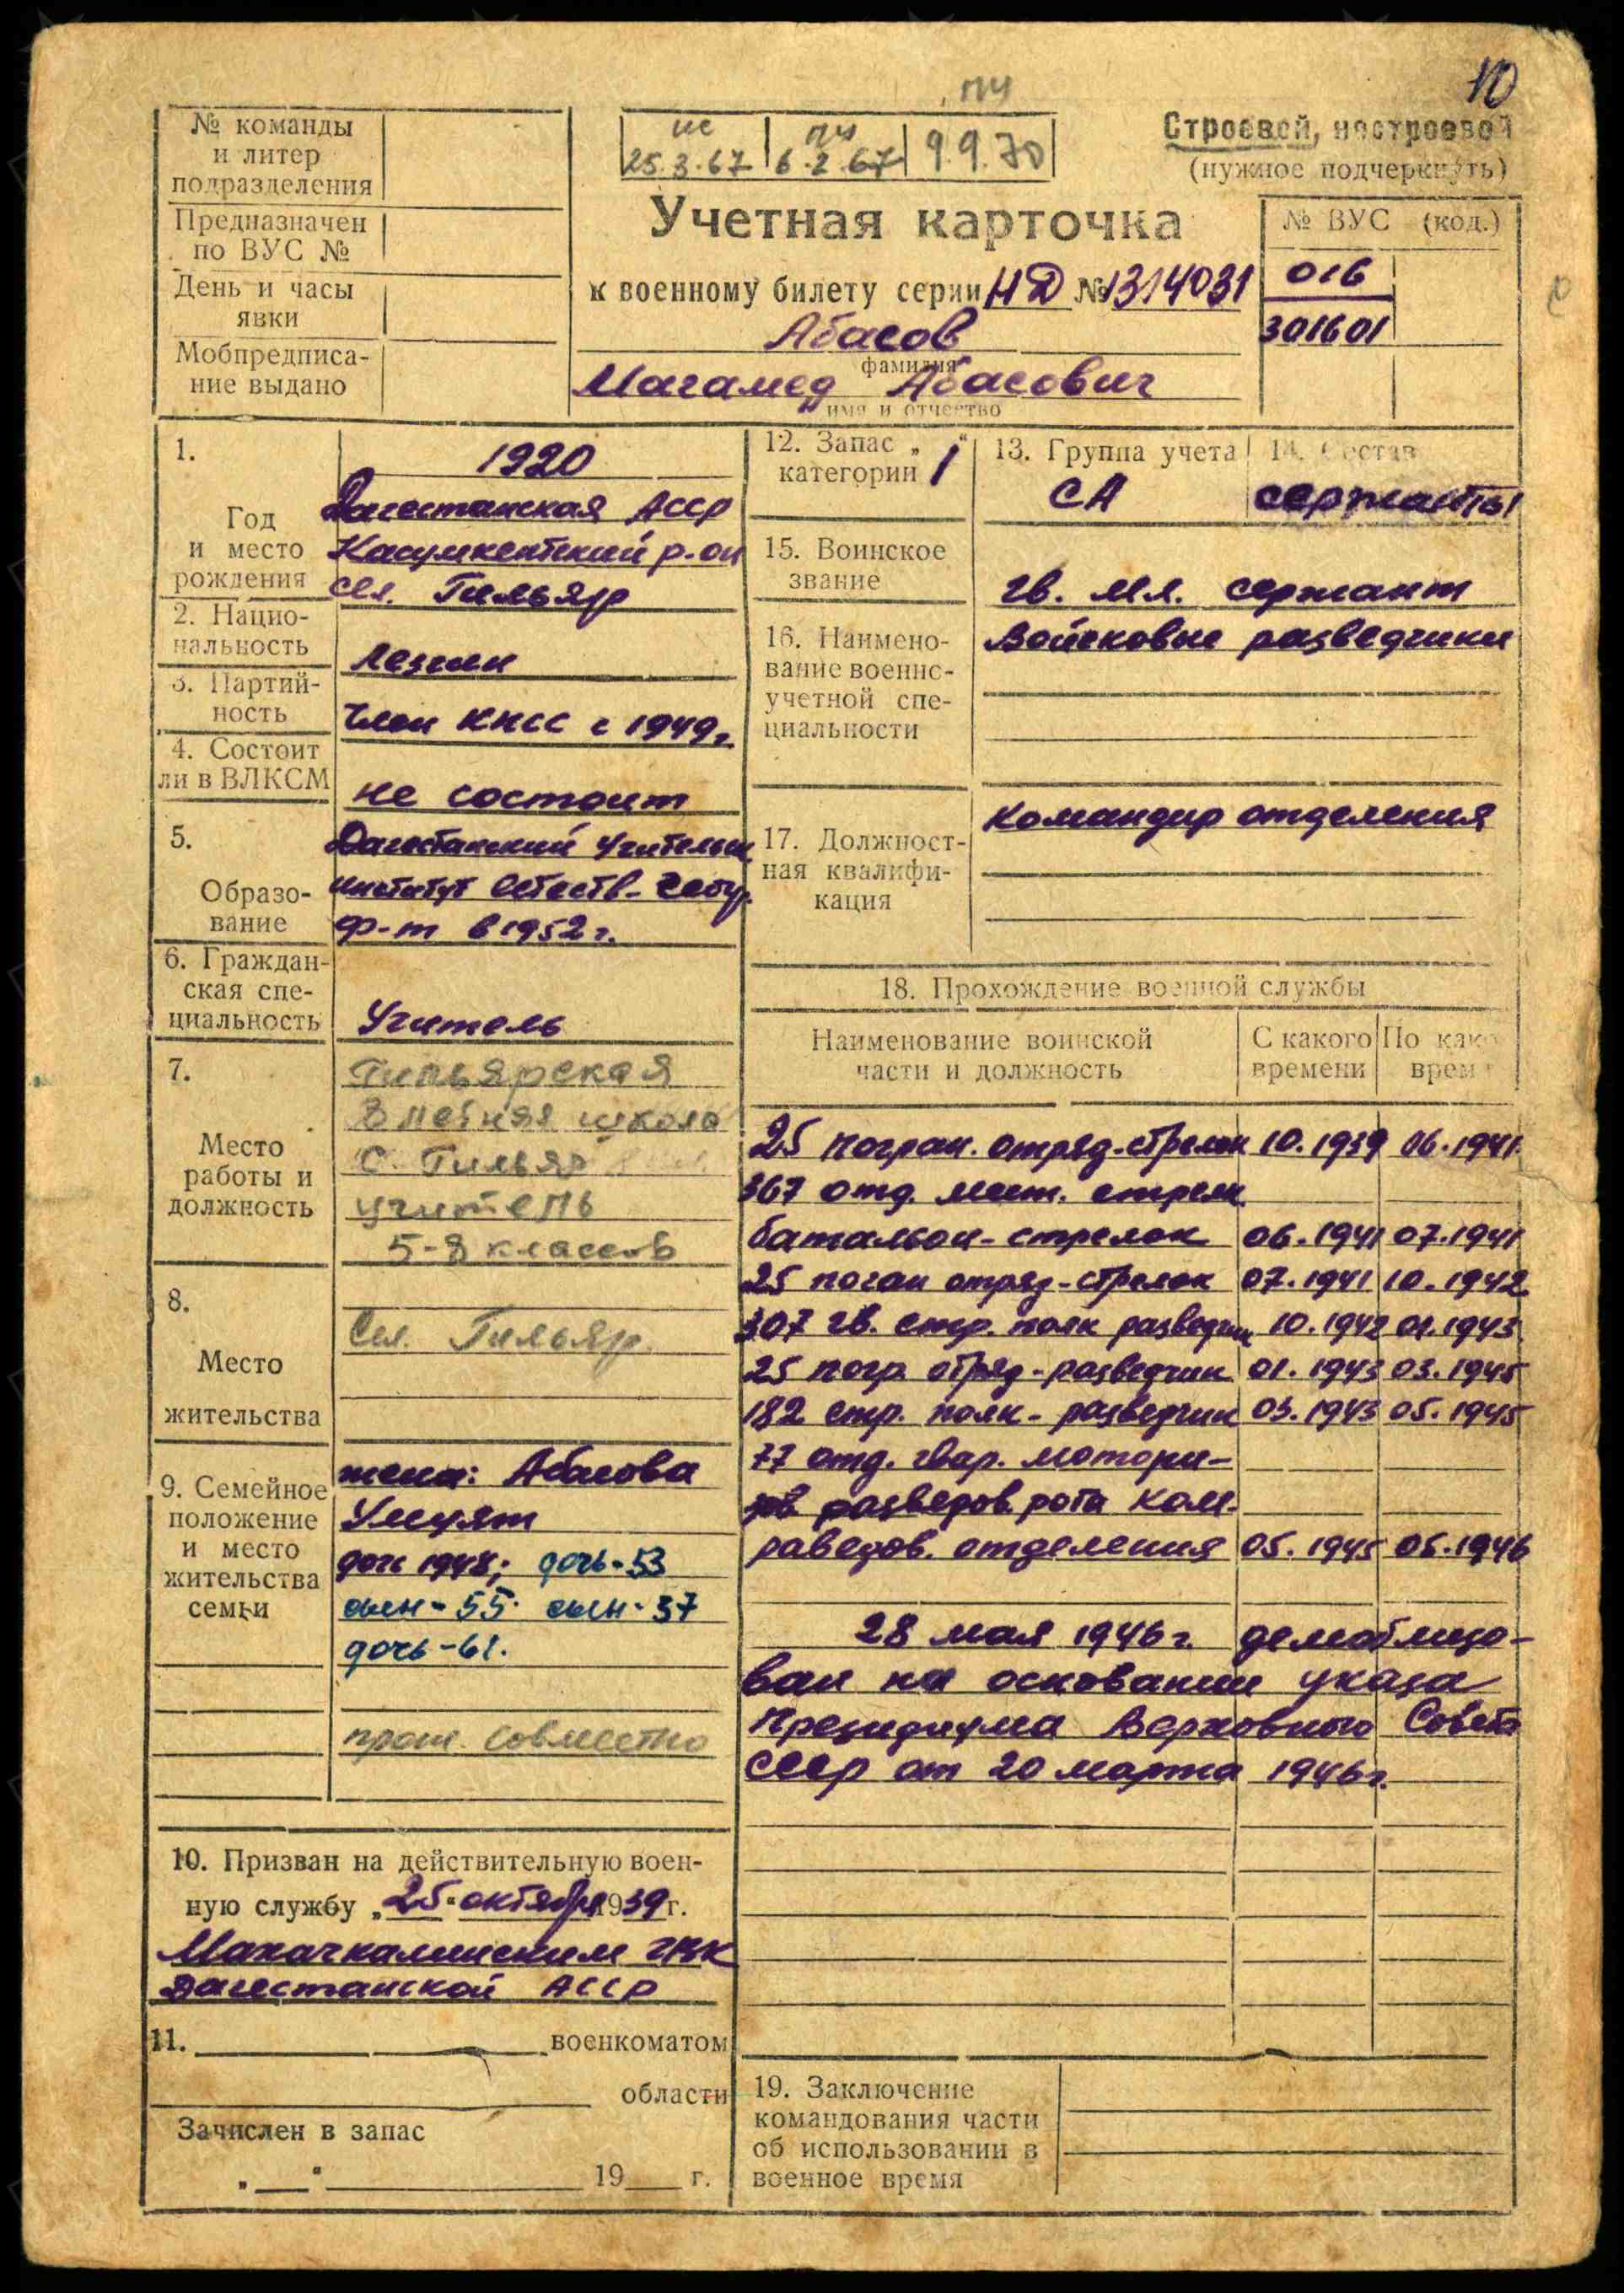 10
пч
№ команды
и литер
подразделения
ис
25.3.67
пч
6.2.67
9.9.70
Строевой, нестроевой
(нужное подчеркнуть)
Предназначен
по ВУС №
День и часы
явки
Мобпредписа-
ние выдано
Учетная карточка
к военному билету серии НД № 1314031
Абасов
фамилия
Магамед Абасович
имя и отчество
№ ВУС (код.)
016
301601
1.
Год
и место
рождения
1920
Дагестанская АССР
Касумкентский р-он
сел. Гильяр
2. Нацио-
нальность
Лезгин
3. Партий-
ность
Член КПСС с 1949г.
4. Состоит
ли в ВЛКСМ
не состоит
5.
Образо-
вание
Дагестанский Учительск
институт естеств-
ф-т в 1952г.
6. Граждан-
ская спе-
циальность
Учитель
7.
Место
работы и
должность
Гильярская
8 летняя школа
с. Гильяр
учитель
5-8 классов
8.
Место
жительства
Сел. Гильяр.
9. Семейное
положение
и место
жительства
семьи
жена: Абасова
Умуят
дочь 1948; дочь-53
сын-55. сын-57
дочь-61.
прож. совместно
10. Призван на действительную воен-
ную службу „25“ октября 1939г.
Махачкалинским ГВК
Дагестанской АССР
11. военкоматом
области
Зачислен в запас
„ “ 19 г.
12. Запас „ “
категории 1
13. Группа учета
СА
14. Состав
сержанты
15. Воинское
звание
гв. мл. сержант
16. Наимено-
вание военно-
учетной спе-
циальности
Войсковые разведчики
17. Должност-
ная квалифи-
кация
Командир отделения
18. Прохождение военной службы
Наименование воинской
части и должность
С какого
времени
По како
врем
25 погран. отряд-стрелок 10.1939 06.1941
367 отд. мест. стрелк
батальон-стрелок 06.1941 07.1941
25 погран отряд-стрелок 07.1941 10.1942
307 гв. стр. полк разведчик 10.1942 01.1943
25 погр. отряд-разведчик 01.1943 03.1945
182 стр. полк-разведчик 03.1943 05.1945
77 отд. гвар. мотори-
зов разведов. рота ком.
раведов. отделения 05.1945 05.1946
28 мая 1946г. демоблизо-
ван на основании указа
Президиума Верховного Совета
СССР от 20 марта 1946г.
19. Заключение
командования части
об использовании в
военное время